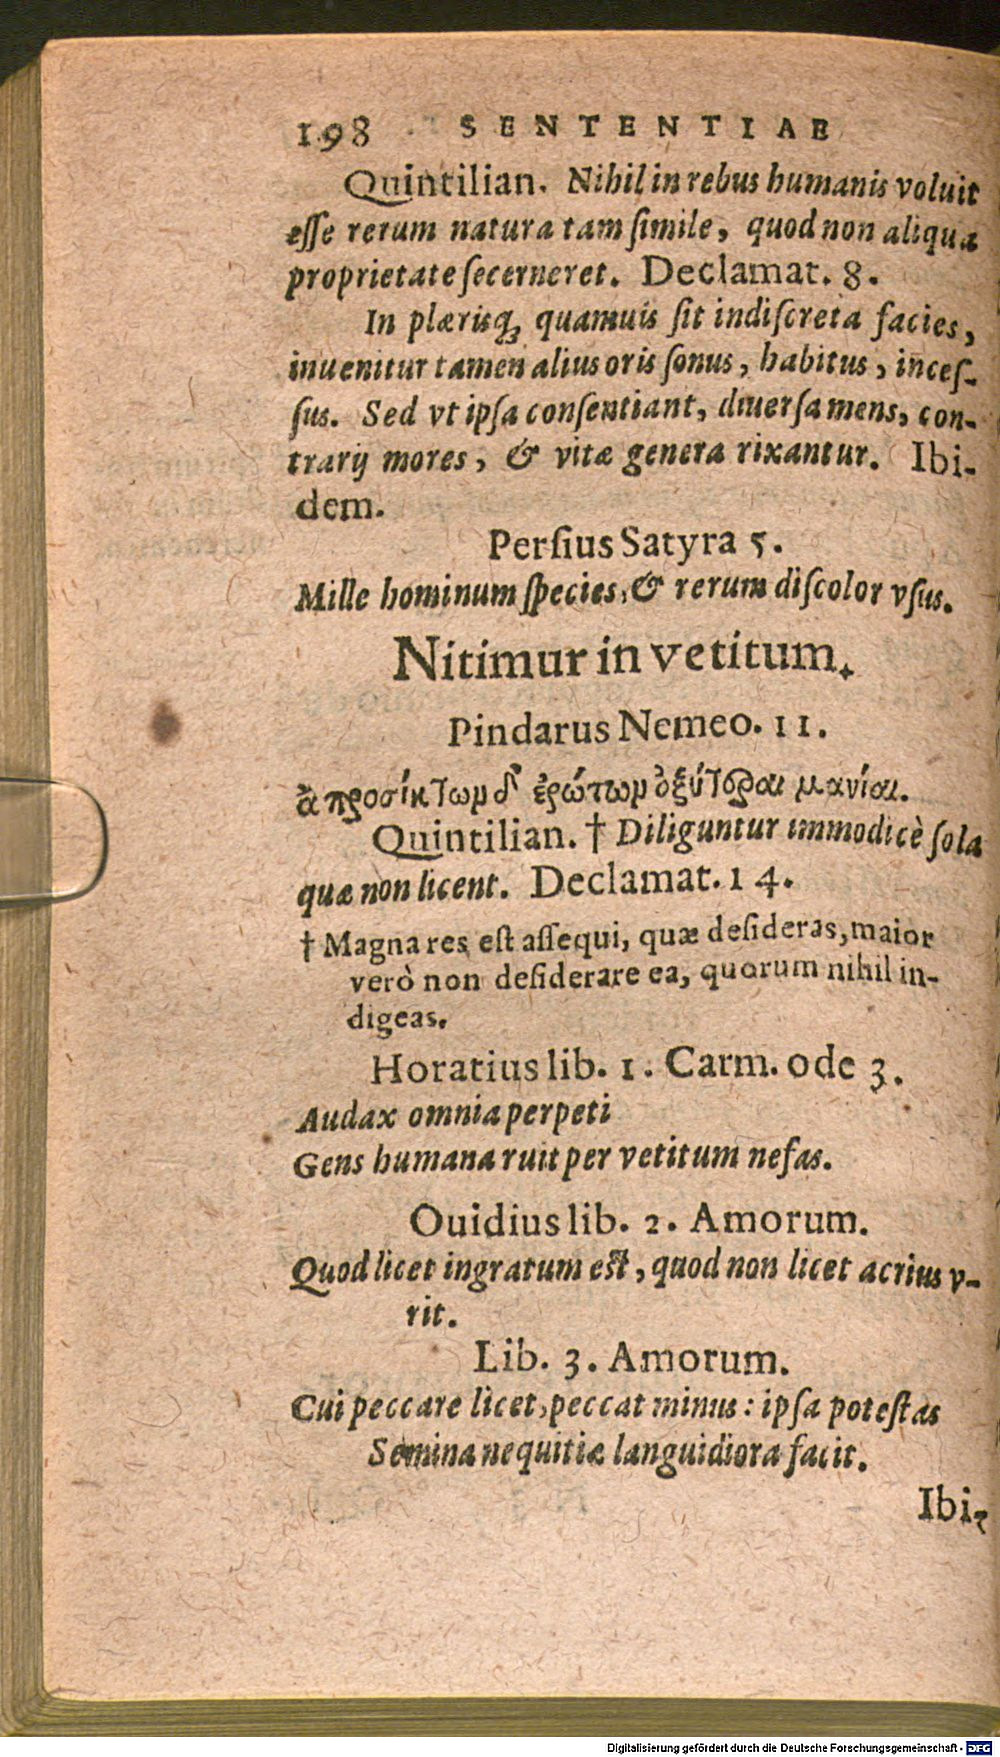 198 SENTENTIAE
Quintilian. Nihil in rebus humanis voluit
esse rerum natura tam simile, quod non aliqua
proprietate secerneret. Declamat. 8.
In plærisq; quamuis sit indiscreta facies,
inuenitur tamen alius oris sonus, habitus, inces-
sus. Sed vt ipsa consentiant, diuersa mens, con-
trarij mores, & vitæ genera rixantur. Ibi-
dem.
Persius Satyra 5.
Mille hominum species, & rerum discolor vsus.
Nitimur in vetitum.
Pindarus Nemeo. 11.
ἀπροσίκτωμ δ' ἐρώτωμ ὀξύτεραι μανίαι.
Quintilian. † Diliguntur immodicè sola
quæ non licent. Declamat. 14.
† Magna res est assequi, quæ desideras, maior
verò non desiderare ea, quorum nihil in-
digeas.
Horatius lib. 1. Carm. ode 3.
Audax omnia perpeti
Gens humana ruit per vetitum nefas.
Ouidius lib. 2. Amorum.
Quod licet ingratum est, quod non licet acrius v-
rit.
Lib. 3. Amorum.
Cui peccare licet, peccat minus: ipsa potestas
Semina nequitiæ languidiora facit.
Ibi-
Digitalisierung gefördert durch die Deutsche Forschungsgemeinschaft - DFG